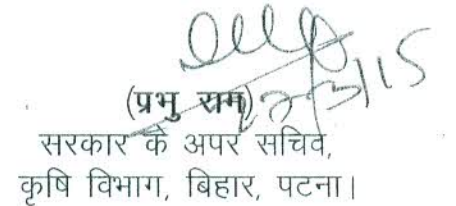 (प्रभु राम)
सरकार के अपर सचिव,
कृषि विभाग, बिहार, पटना।